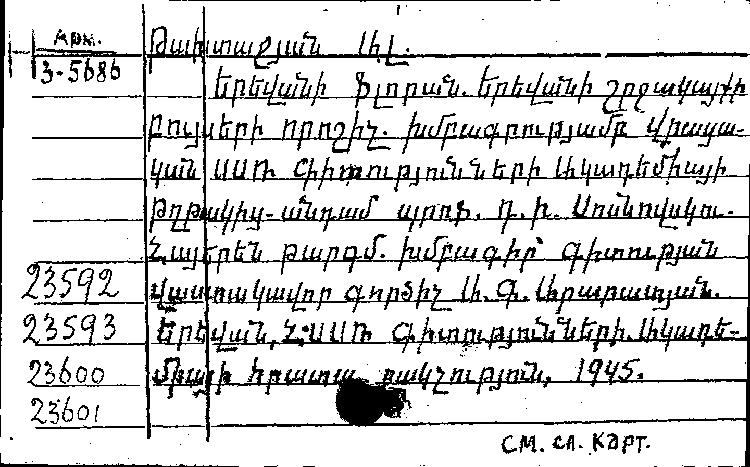 Арм.
3-5686
Թախտաջյան Ալ.
Երեվանի ֆլորան. Երեվանի շրջակայքի
բույսերի որոշիչ. խմբագրությամբ Վրացա-
կան ՍՍՌ Գիտությունների Ակադեմիայի
թղթակից-անդամ պրոֆ. Դ. Ի. Սոսնովսկու.
Հայերեն թարգմ. խմբագիր՝ գիտության
23592 վաստակավոր գործիչ Ա. Գ. Արարատյան.
23593 Երեվան, ՀՍՍՌ Գիտությունների Ակադե-
23600 միայի հրատարակչություն, 1945.
23601
См. сл. карт.